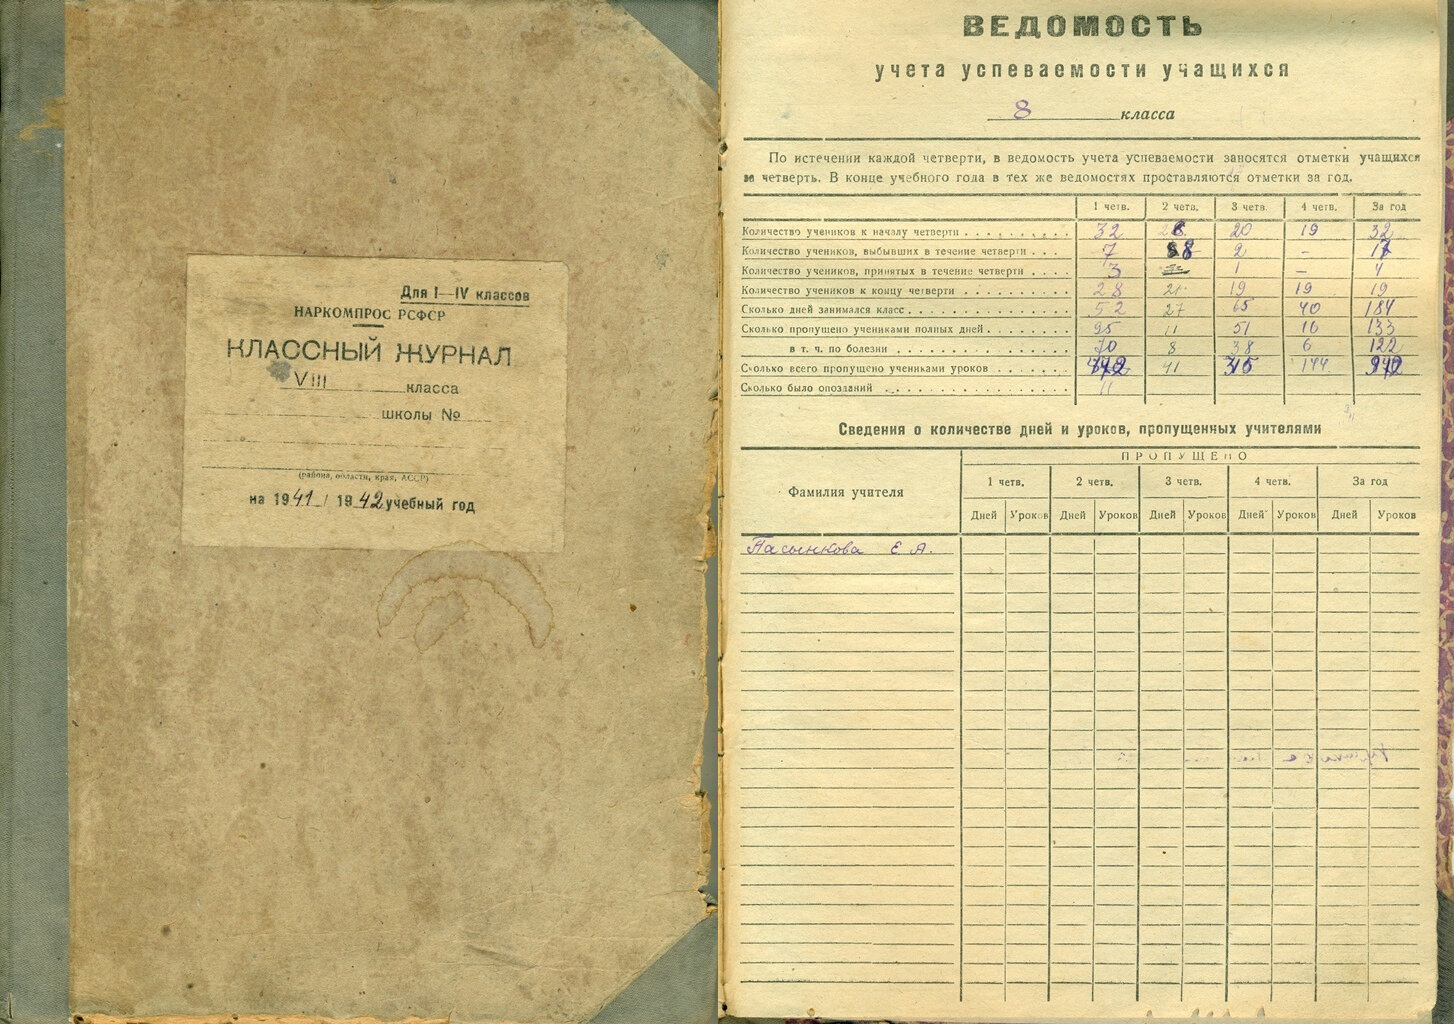 Для I—IV классов
НАРКОМПРОС РСФСР
КЛАССНЫЙ ЖУРНАЛ
VIII класса
школы №
(района, области, края, АССР)
на 1941/1942 учебный год
ВЕДОМОСТЬ
учета успеваемости учащихся
8 класса
По истечении каждой четверти, в ведомость учета успеваемости заносятся отметки учащихся
за четверть. В конце учебного года в тех же ведомостях проставляются отметки за год.
1 четв. 2 четв. 3 четв. 4 четв. За год
Количество учеников к началу четверти 32 20 19 32
Количество учеников, выбывших в течение четверти 7 8 2 — 17
Количество учеников, принятых в течение четверти 3 — 1 — 4
Количество учеников к концу четверти 28 19 19 19
Сколько дней занимался класс 52 27 65 40 184
Сколько пропущено учениками полных дней 95 11 51 16 133
в т. ч. по болезни 70 8 38 6 122
Сколько всего пропущено учениками уроков 41 315 144
Сколько было опозданий 11
Сведения о количестве дней и уроков, пропущенных учителями
Фамилия учителя
ПРОПУЩЕНО
1 четв. 2 четв. 3 четв. 4 четв. За год
Дней Уроков Дней Уроков Дней Уроков Дней Уроков Дней Уроков
Пасынкова Е. А.